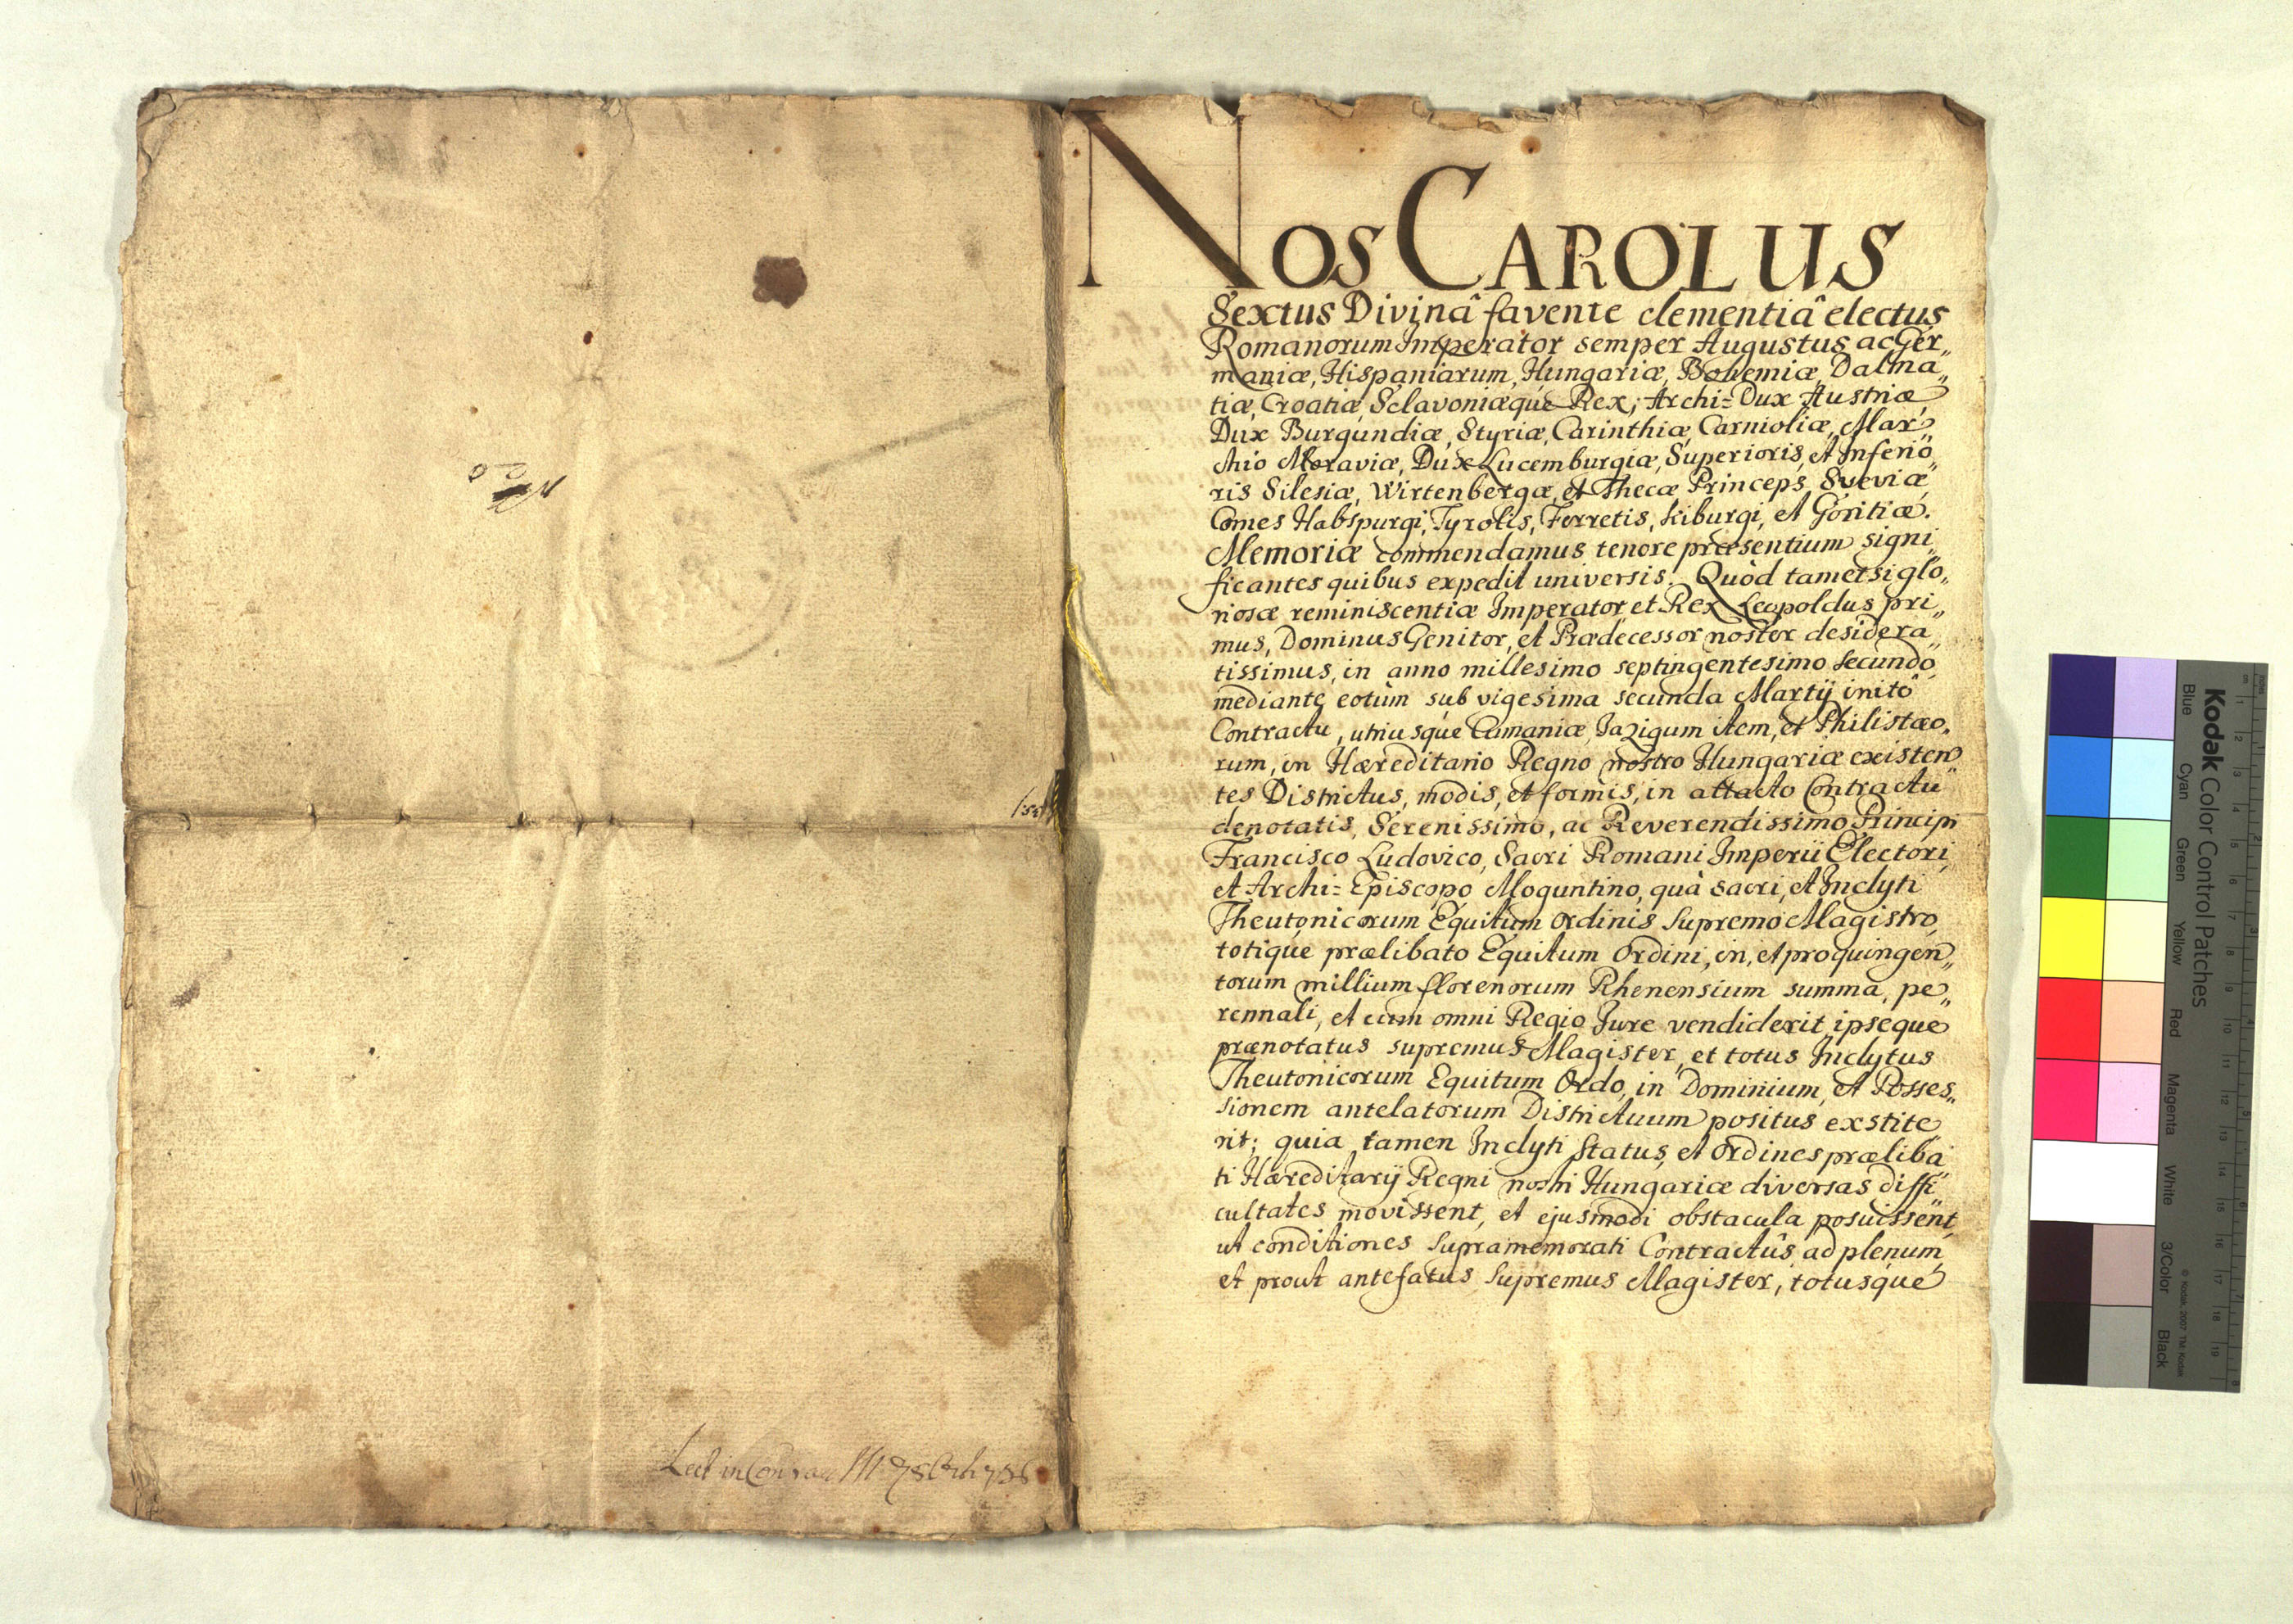 Lect in
NOS CAROLUS
Sextus Divinâ favente clementiâ electus
Romanorum Imperator semper Augustus ac Ger„
maniæ, Hispaniarum, Hungariæ, Bohemiæ, Dalma„
tiæ, Croatiæ, Sclavoniæque Rex; Archi=Dux Austriæ,
Dux Burgundiæ, Styriæ, Carinthiæ, Carnioliæ, Mar„
chio Moraviæ, Dux Lucemburgiæ, Superioris, et Inferio„
ris Silesiæ, Wirtenbergæ, et Thecæ Princeps Sveviæ,
Comes Habspurgi, Tyrolis, Ferretis, Kiburgi, et Goritiæ.
Memoriæ commendamus tenore præsentium signi„
ficantes quibus expedit universis. Quòd tametsi glo„
riosæ reminiscentiæ Imperator, et Rex Leopoldus pri„
mus, Dominus Genitor, et Prædecessor noster desidera„
tissimus, in anno millesimo septingentesimo secundo
mediante eotùm sub vigesima secunda Martÿ initô
Contractu, utriusque Cumaniæ, Jazigum item, et Philistæo„
rum, in Hæreditario Regno nostro Hungariæ existen„
tes Districtus, modis, et formis, in attacto Contractu
denotatis, Serenissimo, ac Reverendissimo Principi
Francisco Ludovico, Sacri Romani Imperii Electori,
et Archi=Episcopo Moguntino, quà sacri, et Inclyti
Theutonicorum Equitum Ordinis Supremo Magistro,
totique prælibato Equitum Ordini, in, et pro quingen„
torum millium florenorum Rhenensium summa, pe„
rennali, et cum omni Regio Jure vendiderit, ipseque
prænotatus supremus Magister, et totus Inclytus
Theutonicorum Equitum Ordo, in Dominium, et Posses„
sionem antelatorum Districtuum positus exstite„
rit; quia tamen Inclyti Status, et Ordines præliba„
ti Hæreditarÿ Regni nostri Hungariæ diversas diffi„
cultates movissent, et ejusmodi obstacula posuissent,
ut conditiones supramemorati Contractûs ad plenum,
et prout antefatus Supremus Magister, totusque
Kodak Color Control Patches
Blue Cyan Green Yellow Red Magenta White 3/Color Black
© Kodak, 2007 TM: Kodak